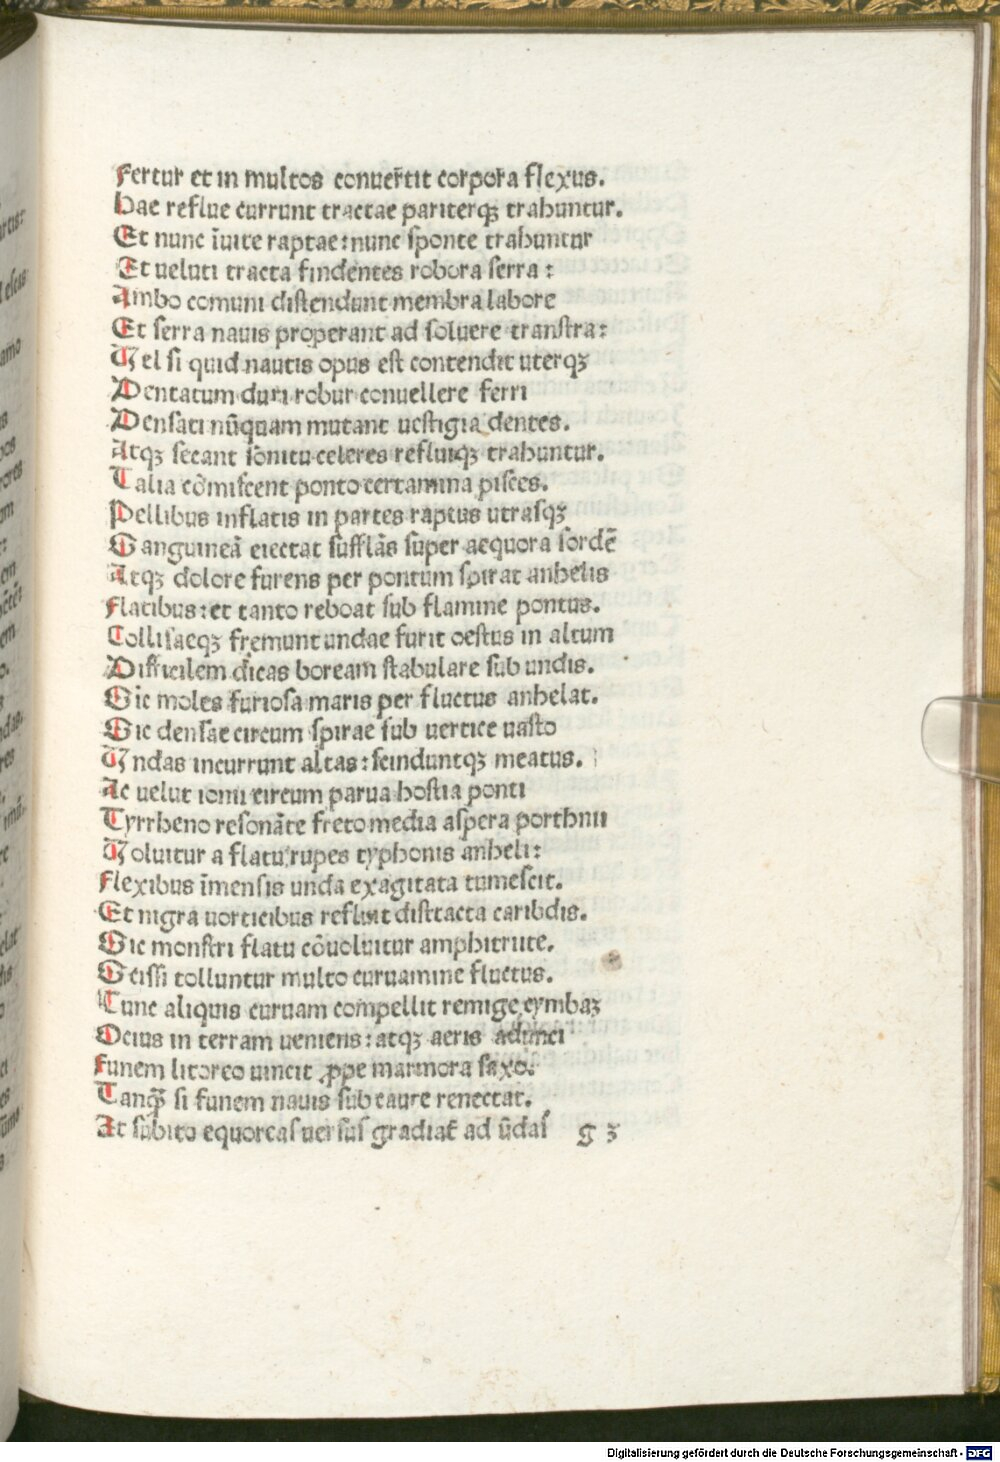 Fertur et in multos conuer̄tit corpora flexus.
Hae reflue currunt tractae pariterqꝫ trahuntur.
Et nunc īuite raptae: nunc sponte trahuntur
Et ueluti tracta findentes robora serra:
Ambo comuni distendunt membra labore
Et serra nauis properant ad soluere transtra:
Vel si quid nautis opus est contendit uterqꝫ
Dentatum duri robur conuellere ferri
Densati nūquam mutant uestigia dentes.
Atqꝫ secant sonitu celeres refluiqꝫ trahuntur.
Talia cōmiscent ponto certamina pisces.
Pellibus inflatis in partes raptus utrasqꝫ
Sanguineā eiectat sufflās super aequora sordē
Atqꝫ dolore furens per pontum spirat anhelis
Flatibus: et tanto reboat sub flamine pontus.
Collisaeqꝫ fremunt undae furit oestus in altum
Difficilem dicas boream stabulare sub undis.
Sic moles furiosa maris per fluctus anhelat.
Sic densae circum spirae sub uertice uasto
Vndas incurrunt altas: scinduntqꝫ meatus.
Ac uelut ionii circum parua hostia ponti
Tyrrheno resonāte freto media aspera porthnii
Voluitur a flatu rupes typhonis anheli:
Flexibus īmensis unda exagitata tumescit.
Et nigra uorticibus refluit disttacta caribdis.
Sic monstri flatu cōuoluitur amphitrite.
Scissi tolluntur multo curuamine fluctus.
Tunc aliquis curuam compellit remige cymbaꝫ
Ocius in terram ueniens: atqꝫ aeris adunci
Funem litoreo uincit ꝓpe marmora saxo.
Tanqꝫ̄ si funem nauis sub caure renectat.
At subito equoreas uersus gradiat᷑ ad ūdas g 3
Digitalisierung gefördert durch die Deutsche Forschungsgemeinschaft - DFG